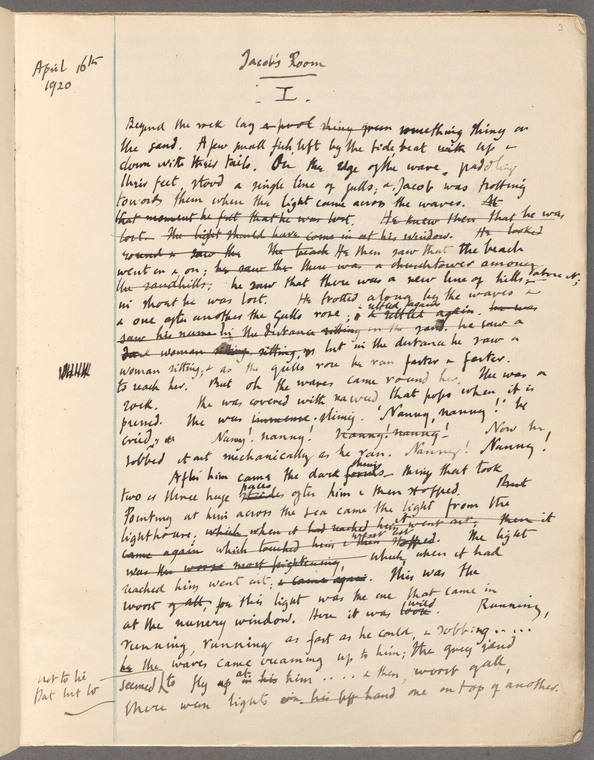 3
April 16th
1920
Jacob's Room
I.
Beyond the rock lay a pool shiny green something shiny on
the sand. A few small fish, left by the tide beat with up &
down with their tails. On the edge of the wave, paddling
their feet, stood a single line of gulls; & Jacob was trotting
towards them when the light came across the waves. At
that moment he felt that he was lost. He knew then that he was
lost. The light should have come in at his window. He looked
round & saw the The beach He then saw that the beach
went on & on; he saw the there was a churchtower among
the sandhills; he saw that there was a new line of hills above it;
in short he was lost. He trotted along by the waves &
& one after another the gulls rose; & settled again & settled again. he was
saw his nurse in the distance sitting in the sand. he saw a
woman sitting, but in the distance he saw a
woman sitting; & as the gulls rose he ran faster & faster.
to reach her. But oh the waves came round her. She was a
rock. She was covered with seaweed that pops when it is
pressed. She was immense slimy. 'Nanny, nanny!' he
cried, Nanny! nanny! Nanny! nanny! Now he
sobbed it out mechanically as he ran. Nanny! Nanny!
After him came the dark shiny thing that took
two or three huge paces strides after him & then stopped. But
Pointing at him across the sea came the light from the
lighthouse. which when it had reached him, it went out; then it
came again which touched him & then stopped. went out The light
was the worse most frightening, which, when it had
reached him went out; & came again. This was the
worst of all, for this light was the one that came in
at the nursery window. Here it was wild. Running,
running, running as fast as he could, & sobbing.....
he the waves came creaming up to him; the grey sand
not to lie
flat but to
seemed to fly up at in his him ..... & then, worst of all,
there were lights on his left hand one on top of another.